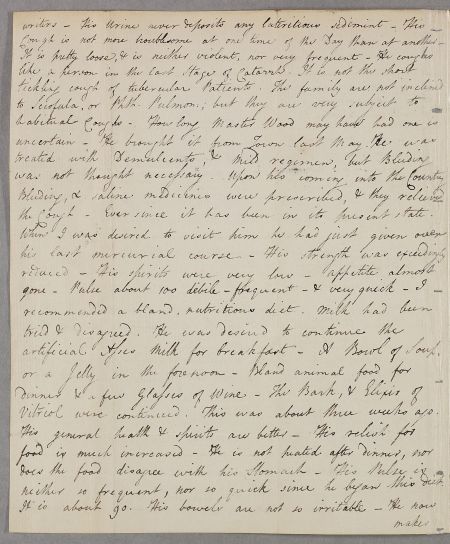 writers - His Urine never deposits any lateritious sediment - His
Cough is not more troublesome at one time of the Day than at another -
It is pretty loose, & is neither violent, nor very frequent - He coughs
like a person in the last Stage of Catarrh. It is not the short
tickling cough of tubercular Patients. The family are not inclined
to Scrofula, or Phth: Pulmon: but they are very subject to
habitual Coughs - How long Master Wood may have had one is
uncertain - He brought it from Town last May. He was
treated with Demulcents, & mild regimen, but Bleeding
was not thought necessary. Upon his coming into the Country
Bleeding, & saline medicines were prescribed, & they relieved
the Cough - Ever since it has been in its present state.
When I was desired to visit him he had just given over
his last mercurial course - His strength was exceedingly
reduced - His spirits were very low - appetite almost
gone - Pulse about 100 debile - frequent - & very quick - I
recommended a bland, nutritious diet. Milk had been
tried & disagreed. He was desired to continue the
artificial Asses Milk for breakfast - A Bowl of Soup,
or a Jelly in the forenoon - Bland animal food for
Dinner & a few Glasses of Wine - The Bark, & Elixir of
Vitriol were continued. This was about three weeks ago.
His general health & spirits are better - His relish for
food is much increased - He is not heated after dinner, nor
does the food disagree with his Stomach - His Pulse is
neither so frequent, nor so quick since he began this diet
It is about 90. His bowels are not so irritable - He now
makes